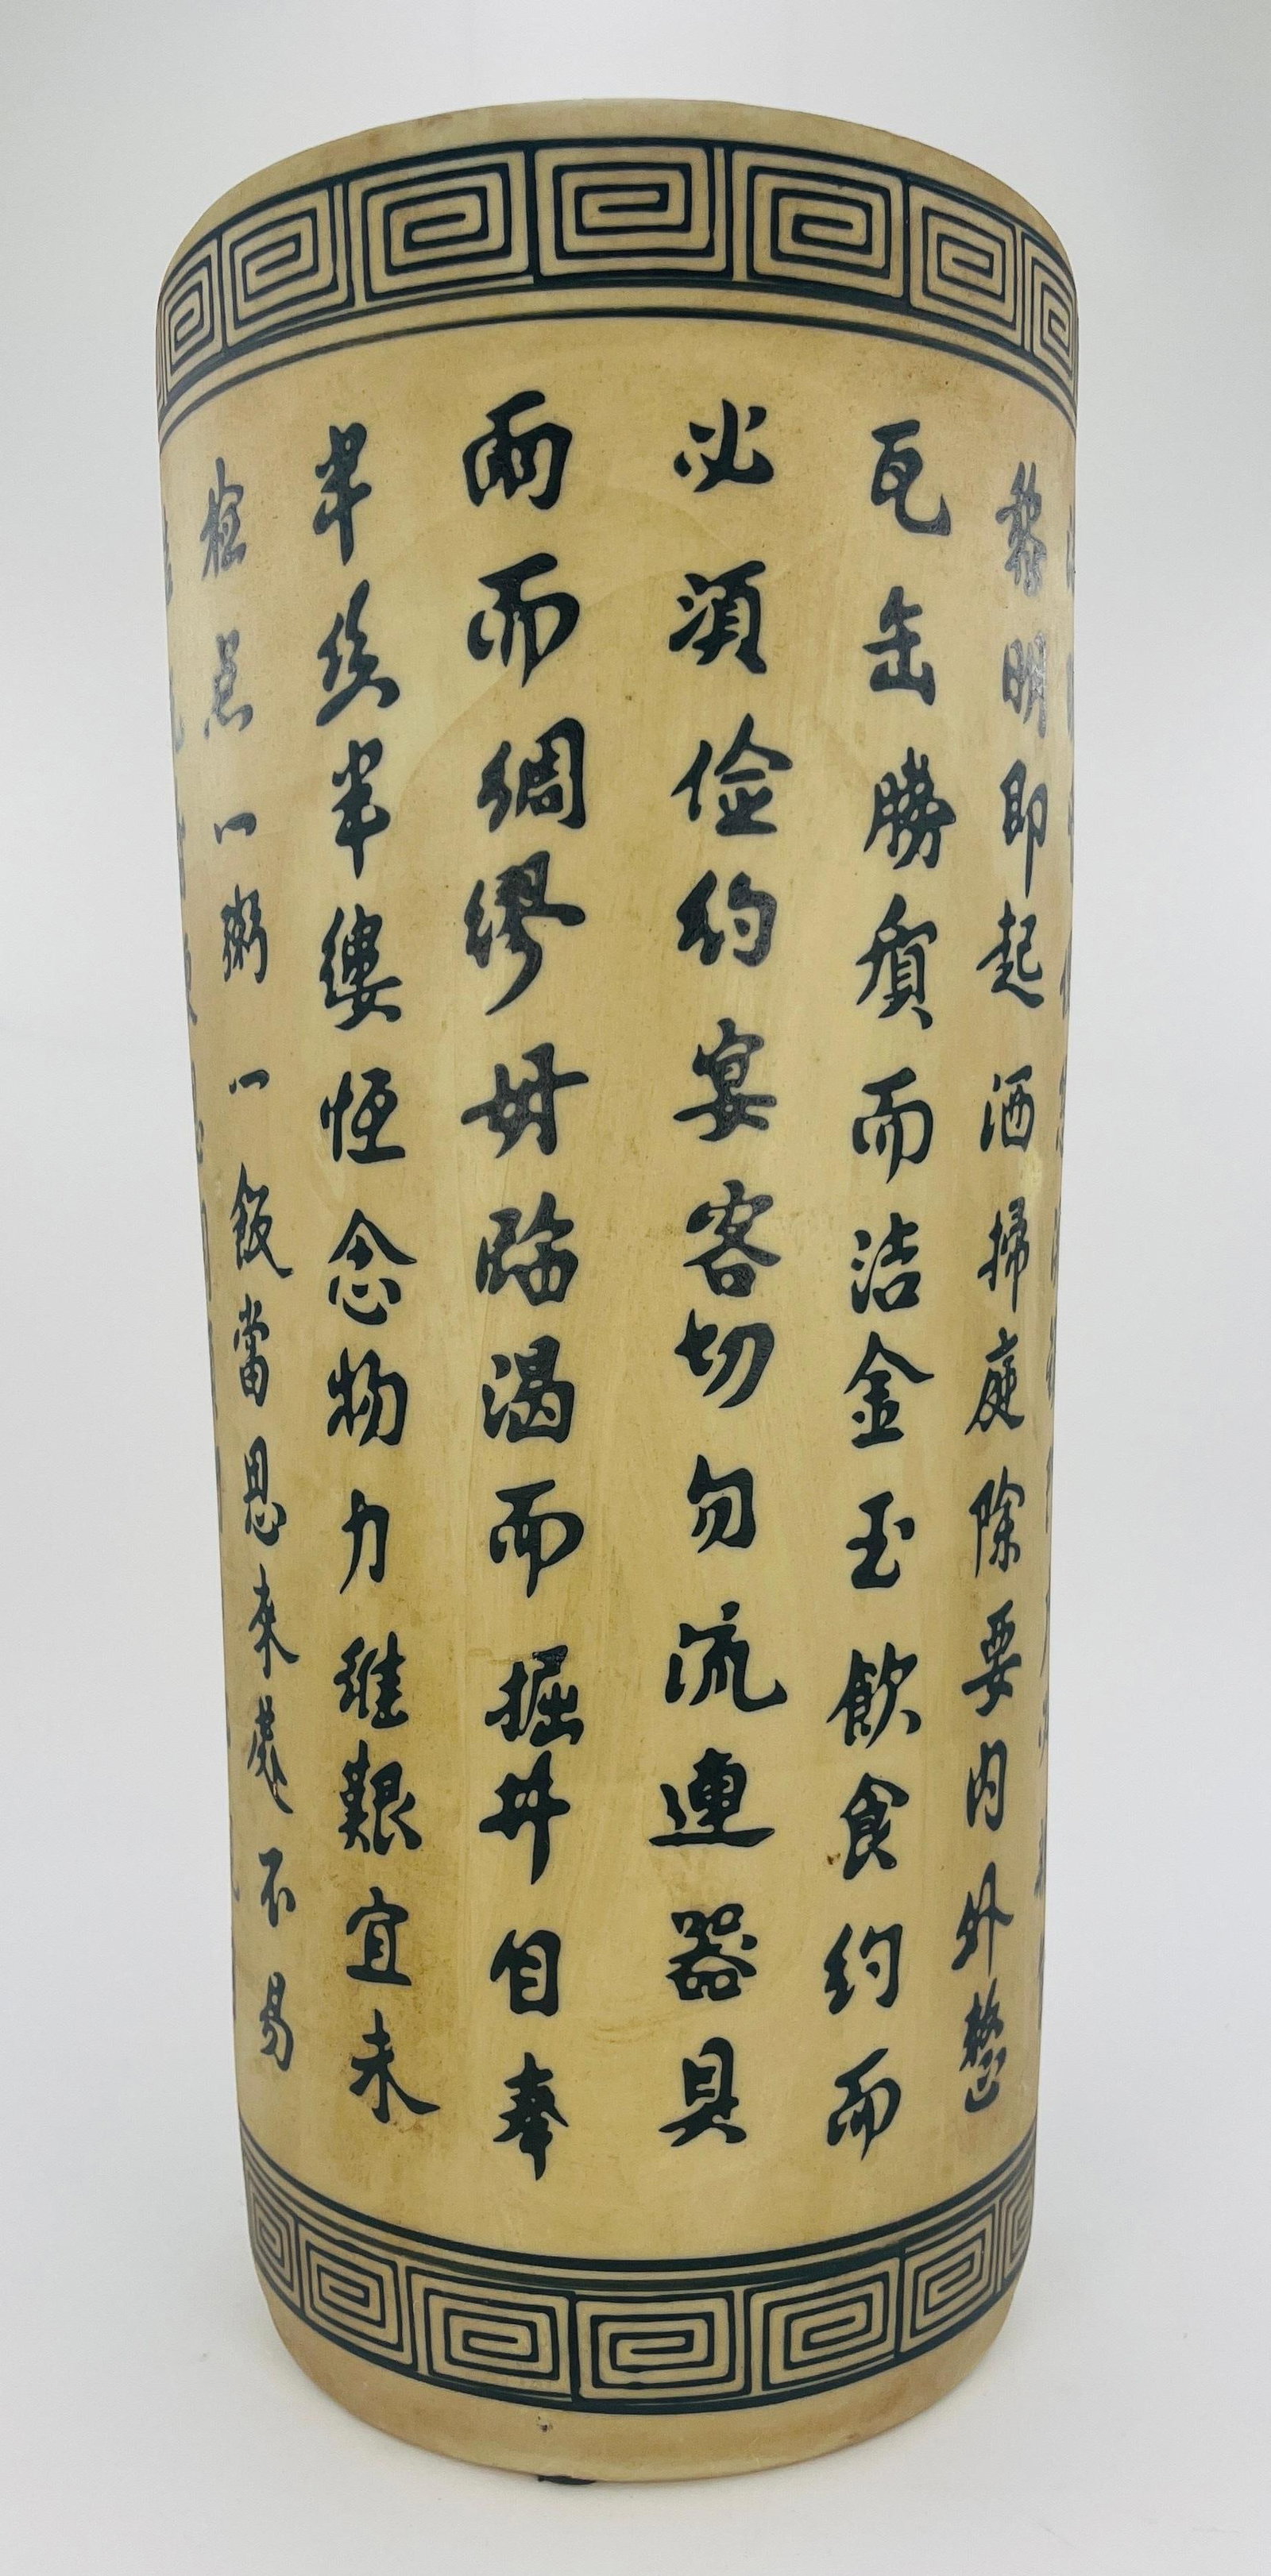 黎明即起洒掃庭除要内外整
瓦缶勝質而洁金玉飲食約而
必須俭約宴客切勿流連器具
雨而綢繆毋臨渴而掘井自奉
半絲半縷恒念物力維艱宜未
检点一粥一飯當思來處不易